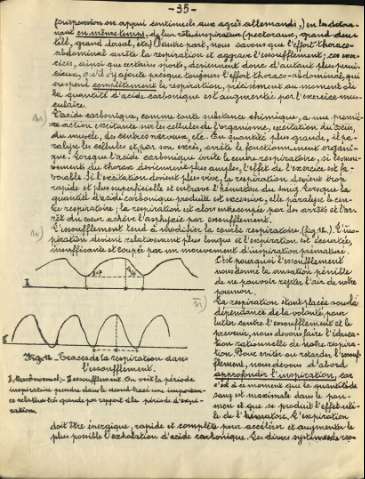 -35-
(suspension ou appui continuels aux agrès allemands,) en la déter-
minant en même temps,
et grand dorsal, etc) D'autre part, nous savons que l'effort thoraco-
abdominal arrête la respiration et aggrave l'essoufflement; ces exer-
cices, ainsi que certains sports, deviennent donc d'autant plus perni-
cieux, qu'il s'y ajoute presque toujours l'effort thoraco-abdominal, qui
suspend complètement la respiration, précisément au moment où
la quantité d'acide carbonique est augmentée par l'exercice mus-
culaire.
L'acide carbonique, comme toute substance chimique, a une premiè-
re action excitante sur les cellules de l'organisme, excitation du
du muscle, des centres nerveux, etc. En quantité plus grande, il pa-
ralyse les cellules et par son excès, arrête le fonctionnement organi-
que. Lorsque l'acide carbonique excite le centre respiratoire, si les mou-
vements du thorax deviennent plus amples, l'effet de l'exercice est fa-
vorable. Si l'excitation devient plus vive, la respiration devient trop
rapide et plus superficielle et entrave l'hématose du sang. Lorsque la
quantité d'acide carbonique produite est excessive, elle paralyse le cen-
tre respiratoire; la respiration est alors entrecoupée par des arrêts et l'ar-
rêt du cœur achève l'asphyxie par essoufflement.
L'essoufflement tend à modifier la courbe respiratoire (fig. 12.) L'ins-
piration devient relativement plus longue et l'expiration est écourtée,
insuffisante et coupée par un mouvement d'inspiration prématuré.
C'est pourquoi l'essoufflement
nous donne la sensation pénible
de ne pouvoir rejeter l'air de notre
poumon.
La respiration étant placée sous la
dépendance de la volonté, pour
lutter contre l'essoufflement et le
prévenir, nous devons faire l'éduca-
tion rationnelle de notre respira-
tion. Pour éviter ou retarder l'essouf-
flement, nous devons d'abord
approfondir l'inspiration, car
c'est à ce moment que la quantité de
sang est maximale dans le pou-
mon et que se produit l'effet uti-
le de l'hématose. L'expiration
I
E
Fig. 12. Traces de la respiration dans
l'essoufflement.
I. Normalement, E essoufflement. On voit la période
inspiratoire prendre dans le second tracé une importan-
ce relative très grande par rapport à la période d'expi-
ration.
doit être énergique, rapide et complète pour accélérer et augmenter le
plus possible l'exhalation d'acide carbonique. Les divers systèmes de res-